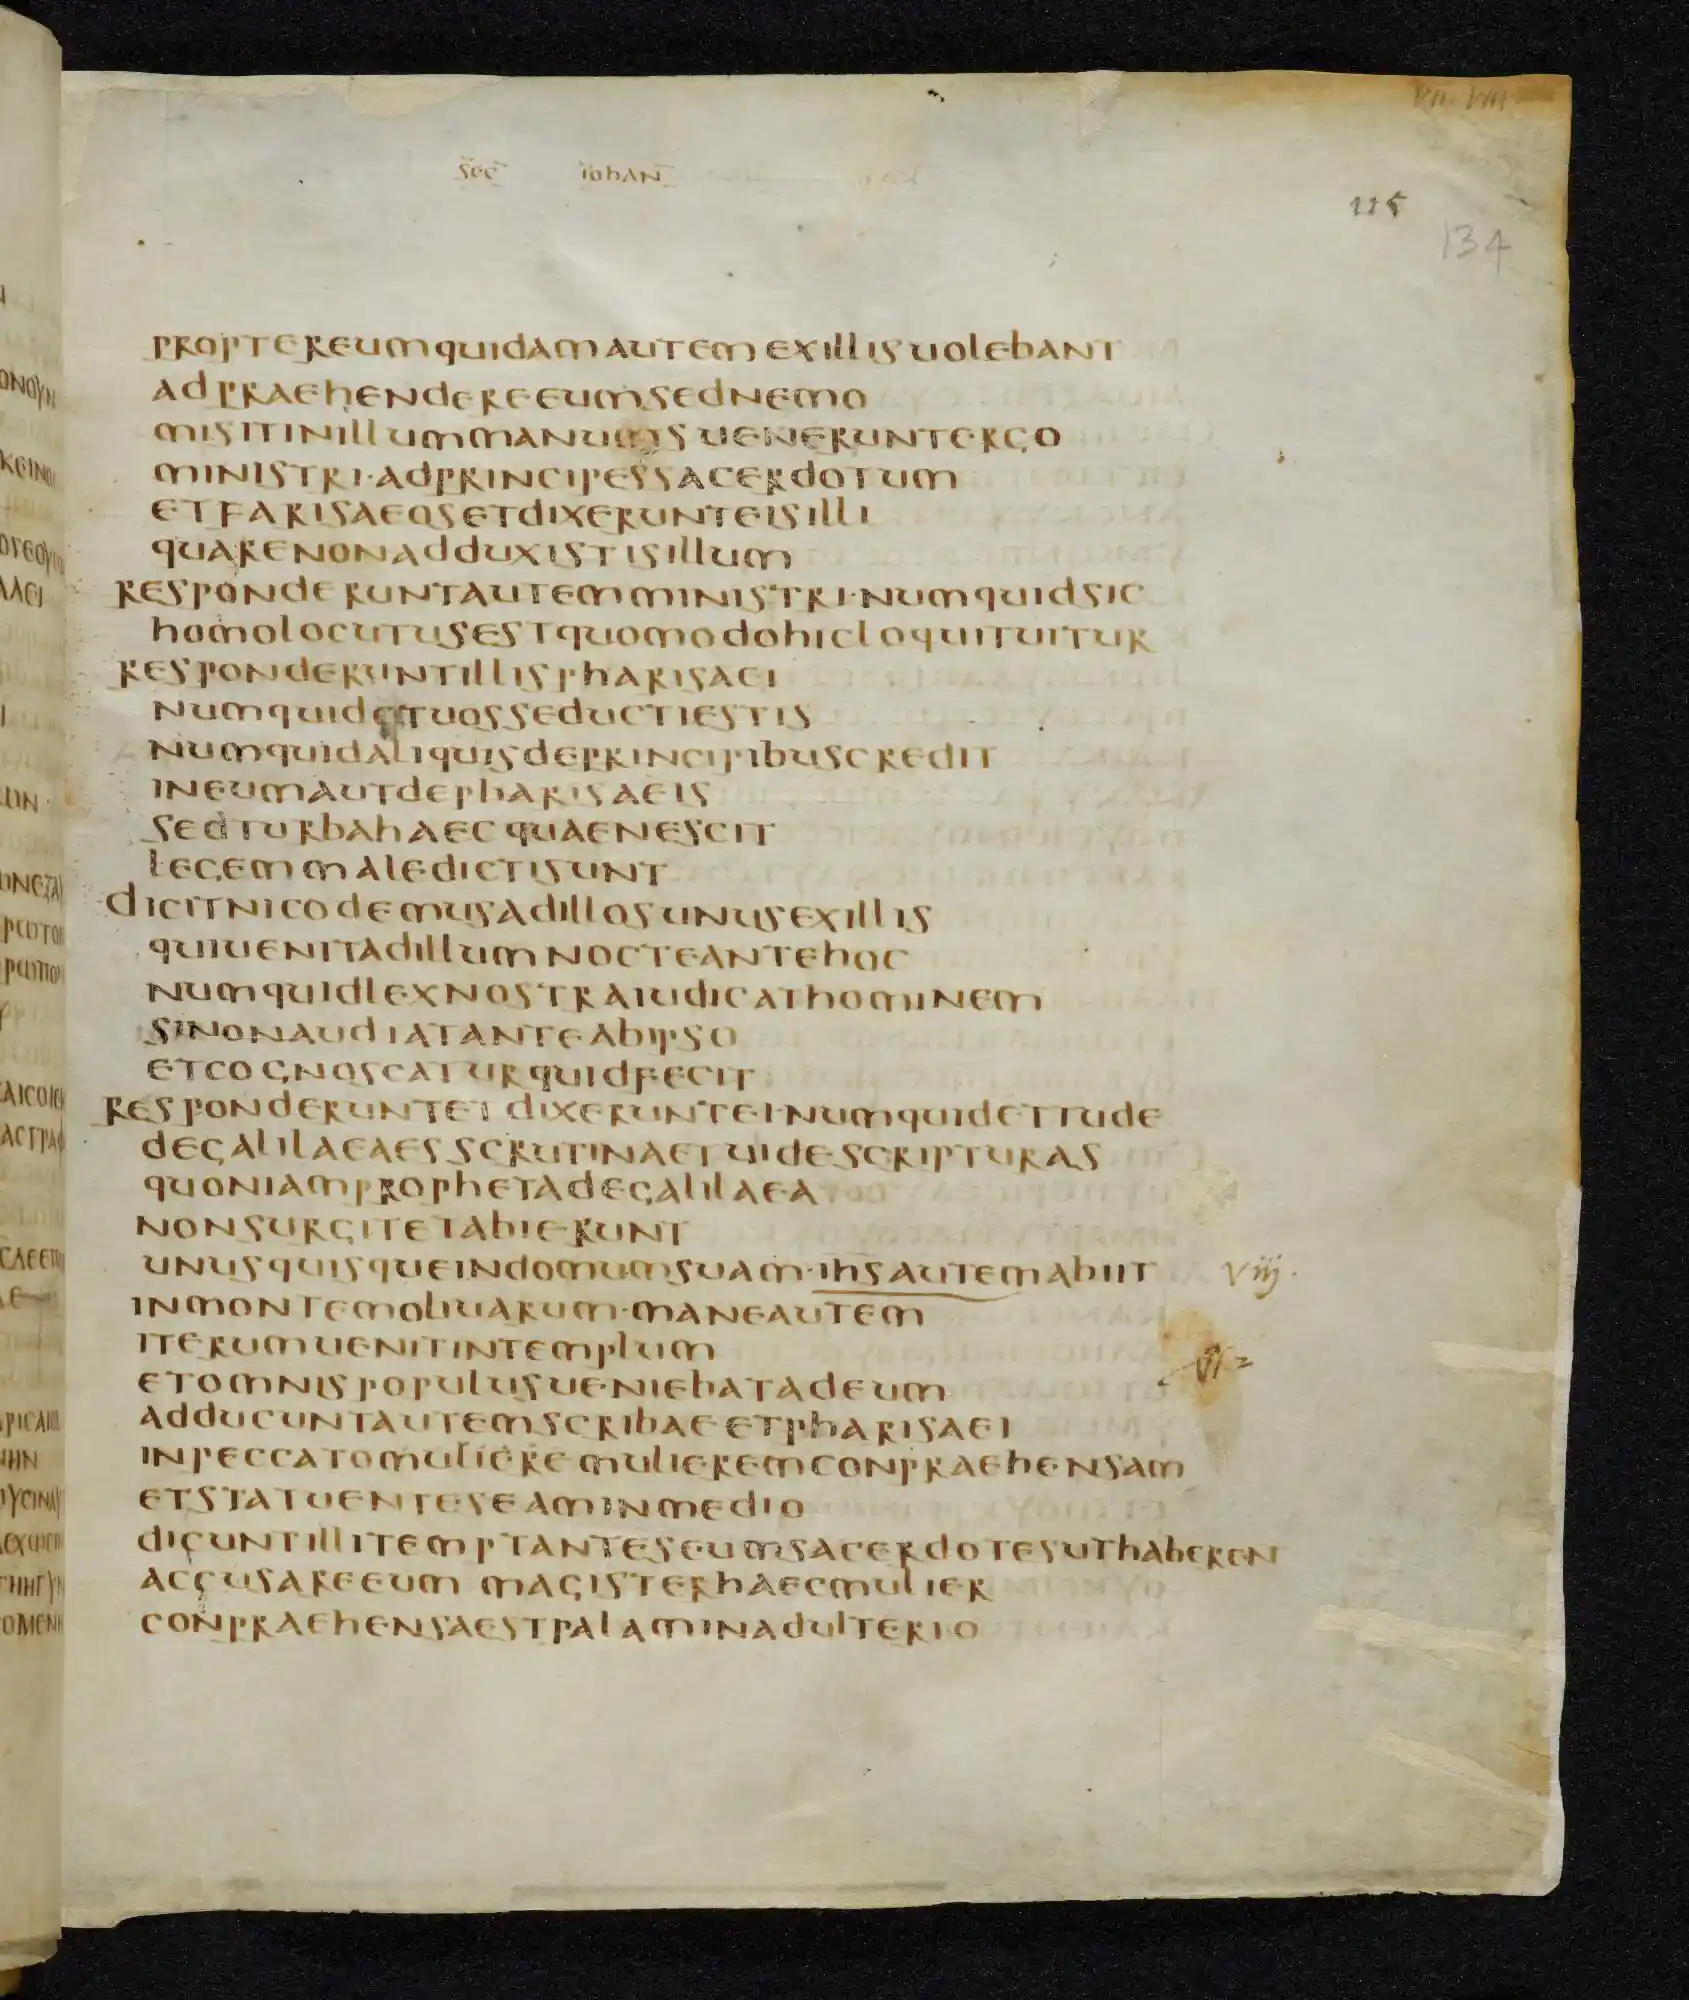 VII. VIII
sec iohan
115
134
propter eum quidam autem ex illis uolebant
adpraehendere eum sed nemo
misit in illum manus uenerunt ergo
ministri · ad principes sacerdotum
et farisaeos et dixerunt eis illi
quare non adduxistis illum
responderunt autem ministri · numquid sic
homo locutus est quomodo hic loquituitur
responderunt illis pharisaei
numquid et uos seducti estis
numquid aliquis de principibus credit
in eum aut de pharisaeis
sed turba haec quae nescit
legem maledicti sunt
dicit nicodemus ad illos unus ex illis
qui uenit ad illum nocte ante hoc
numquid lex nostra iudicat hominem
si non audiat ante ab ipso
et cognoscatur quid fecit
responderunt et dixerunt ei · numquid et tu de
de galilaea es scrutina et uide scripturas
quoniam propheta de galilaea
non surgit et abierunt
unusquisque in domum suam · ihs autem abiit
viij ·
in montem oliuarum · mane autem
iterum uenit in templum
et omnis populus ueniebat ad eum
adducunt autem scribae et pharisaei
in peccato muliere mulierem conpraehensam
et statuentes eam in medio
dicunt illi temptantes eum sacerdotes ut haberen
accusare eum magister haec mulier
conpraehensa est palam in adulterio